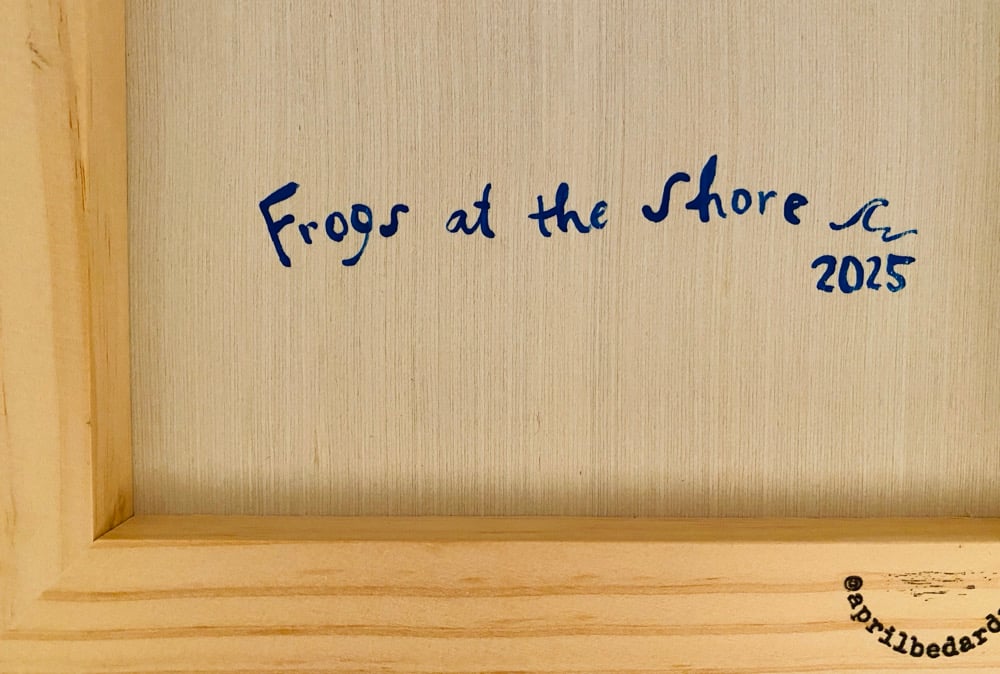 Frogs at the Shore
2025
@aprilbedard